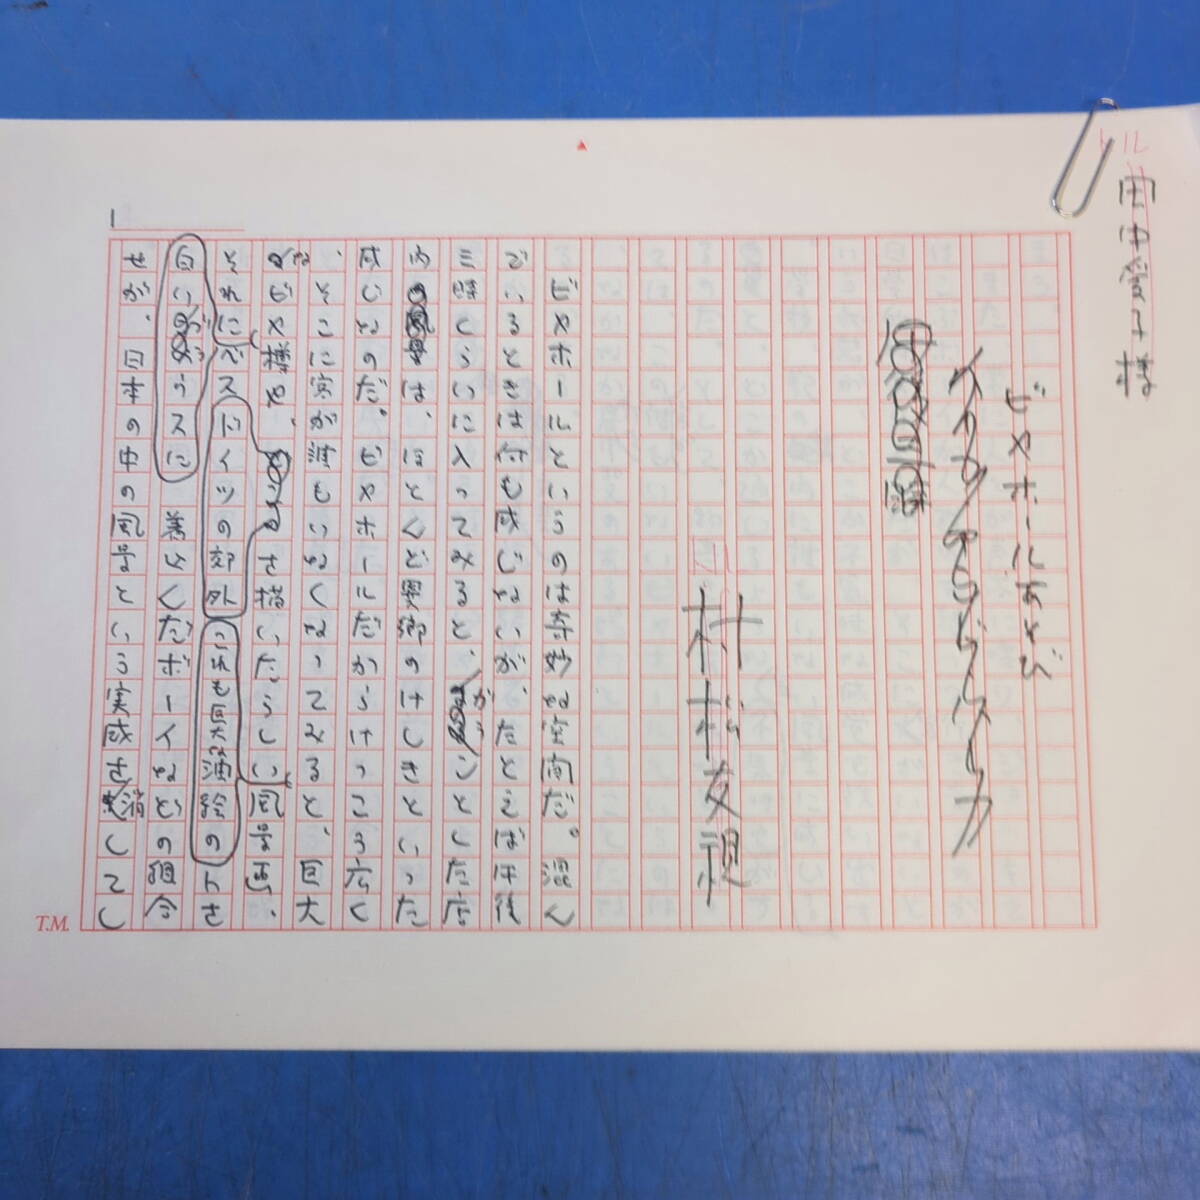 トル
田中愛子様
ビヤホールあそび
村松友視
ビヤホールというのは奇妙な空間だ。混ん
でいるときは何も感じないが、たとえば午後
三時くらいに入ってみると、がらんとした店
内の風景は、ほとんど異郷のけしきといった
感じなのだ。ビヤホールだからけっこう広く
、そこに客が誰もいなくなってみると、巨大
なビヤ樽や、
さ描いたらしい風景画、
それにベスト
ドイツの郊外
これも巨大な油絵の
トさ
白いブラウスに
着込んだボーイなどの組合
せが、日本の中の風景という実感を消してし
1
T.M.